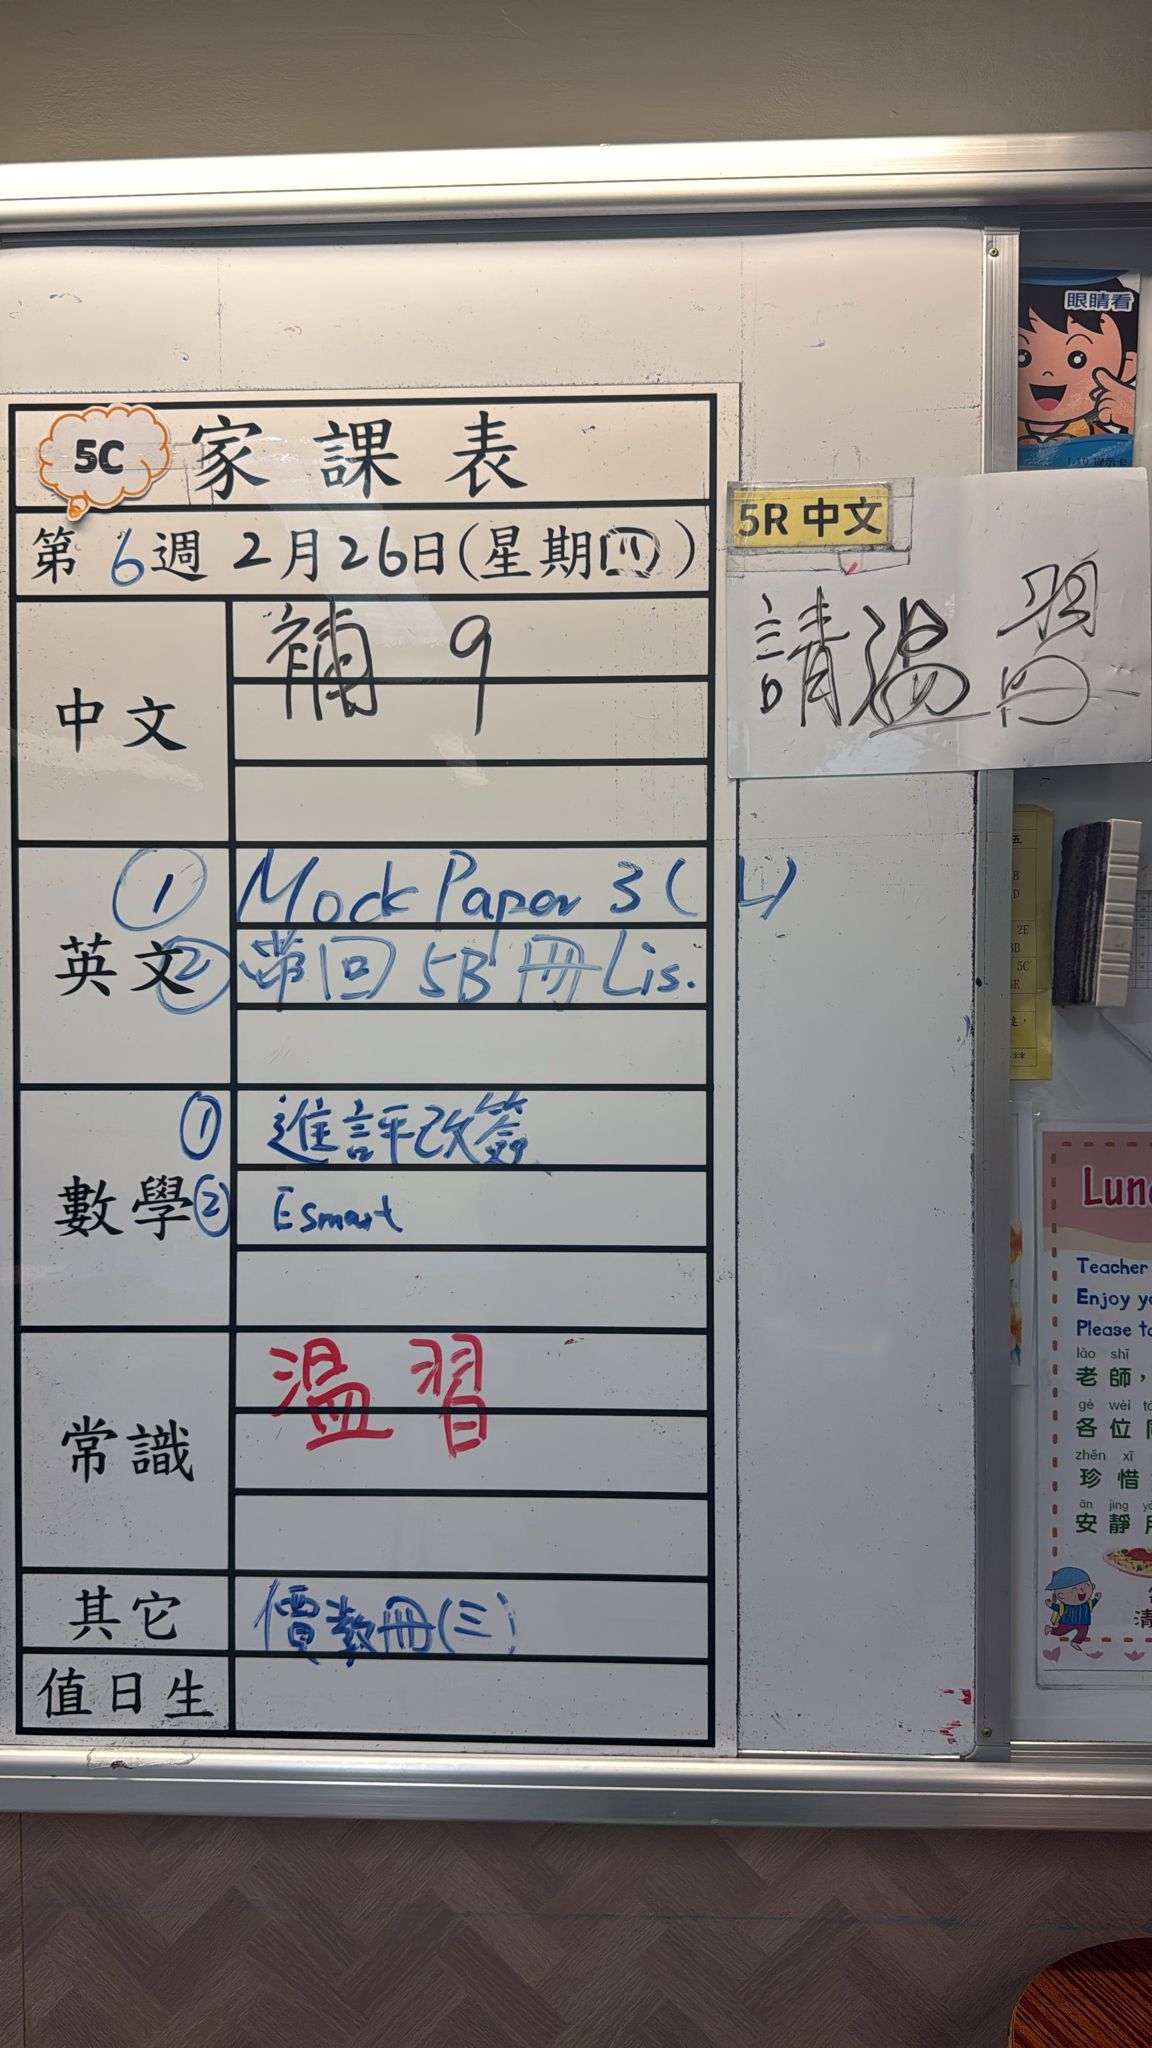 眼睛看
5C 家課表
第6週 2月26日(星期四)
中文
補 9
英文
① Mock Paper 3 ( L)
② 帶回 5B 冊 Lis.
數學
① 進評改簽
② Esmart
常識
溫習
其它
價教冊(三)
值日生
5R 中文
請溫習
五
2E
5C
Teacher
Enjoy
Please
lǎo shī
老師，
gè wèi
各位
zhēn xī
珍惜
ān jìng
安靜